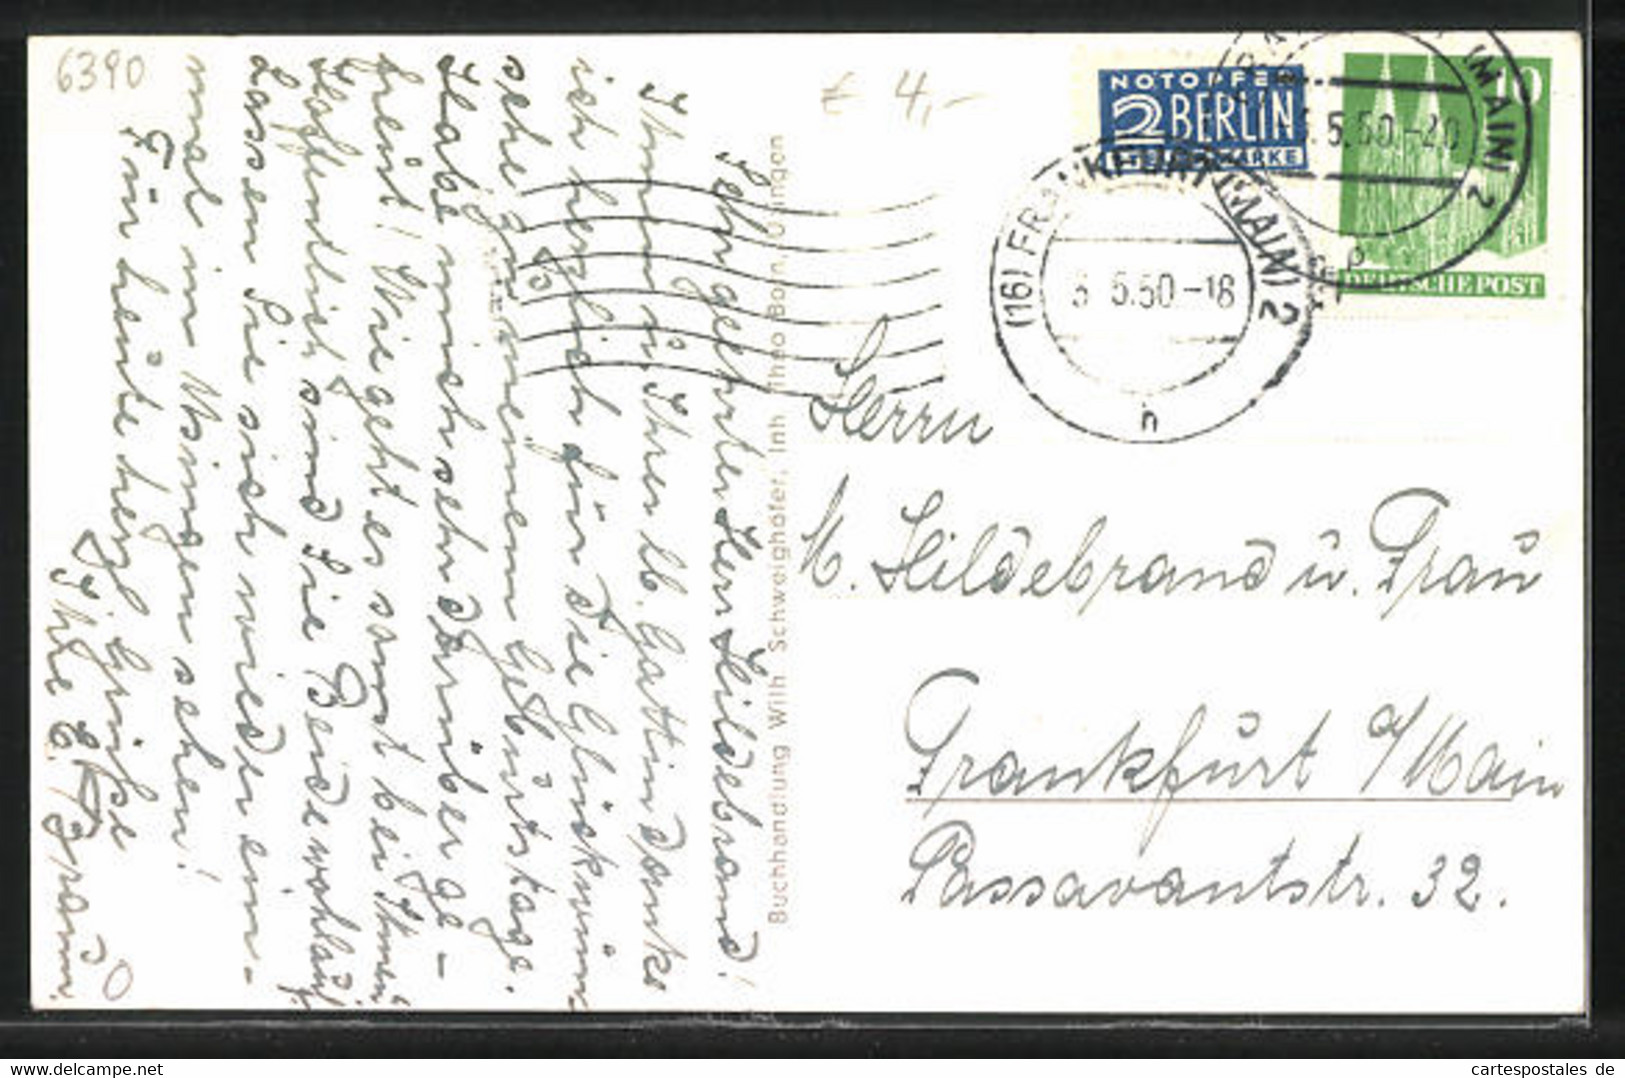 6390
€ 4,-
NOTOPFER
2 BERLIN
STEUERMARKE
10
DEUTSCHE POST
(MAIN) 2
5.50.-20
(16) FRANKFURT (MAIN) 2
3 5.50.-18
h
Sehr geehrter Herr Hildebrand!
Ihnen u. Ihrer lb. Gattin danke
ich herzlich für die Glückwün-
sche zu meinem Geburtstage.
Habe mich sehr darüber ge-
freut! Wie geht es sonst bei Ihnen
Hoffentlich sind Sie Beide wohlauf.
Lassen Sie sich wieder ein-
mal in Usingen sehen!
Für heute herzl. Grüsse
Ihre E. Braun.
Buchhandlung Wilh Schweighöfer, Inh Thno Born, Usingen
Herrn
M. Hildebrand u. Frau
Frankfurt a/Main
Passavantstr. 32.
cartespostales de